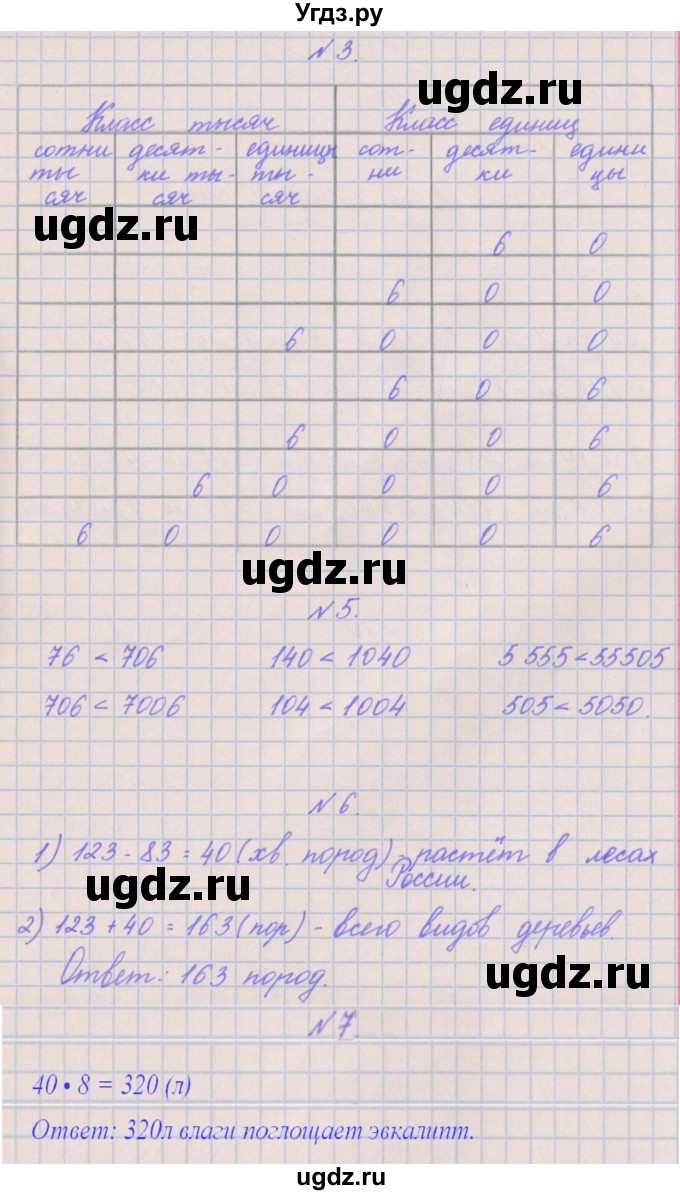 Угдз.ру
№3.
ugdz.ru
Класс тысяч Класс единиц
сотни ты сяч десят- ки ты- сяч единицы ты- сяч сот- ни десят- ки едини цы
ugdz.ru
6 0
6 0 0
6 0 0 0
6 0 6
6 0 0 6
6 0 0 0 6
6 0 0 0 0 6
ugdz.ru
№5.
76 < 706 140 < 1040 5 555 < 55505
706 < 7006 104 < 1004 505 < 5050.
№6.
1) 123 - 83 = 40 (хв. пород) - растёт в лесах
России.
ugdz.ru
2) 123 + 40 = 163 (пор) - всего видов деревьев
Ответ: 163 пород.
ugdz.ru
№7.
40 • 8 = 320 (л)
Ответ: 320л влаги поглощает эвкалипт.
ugdz.ru